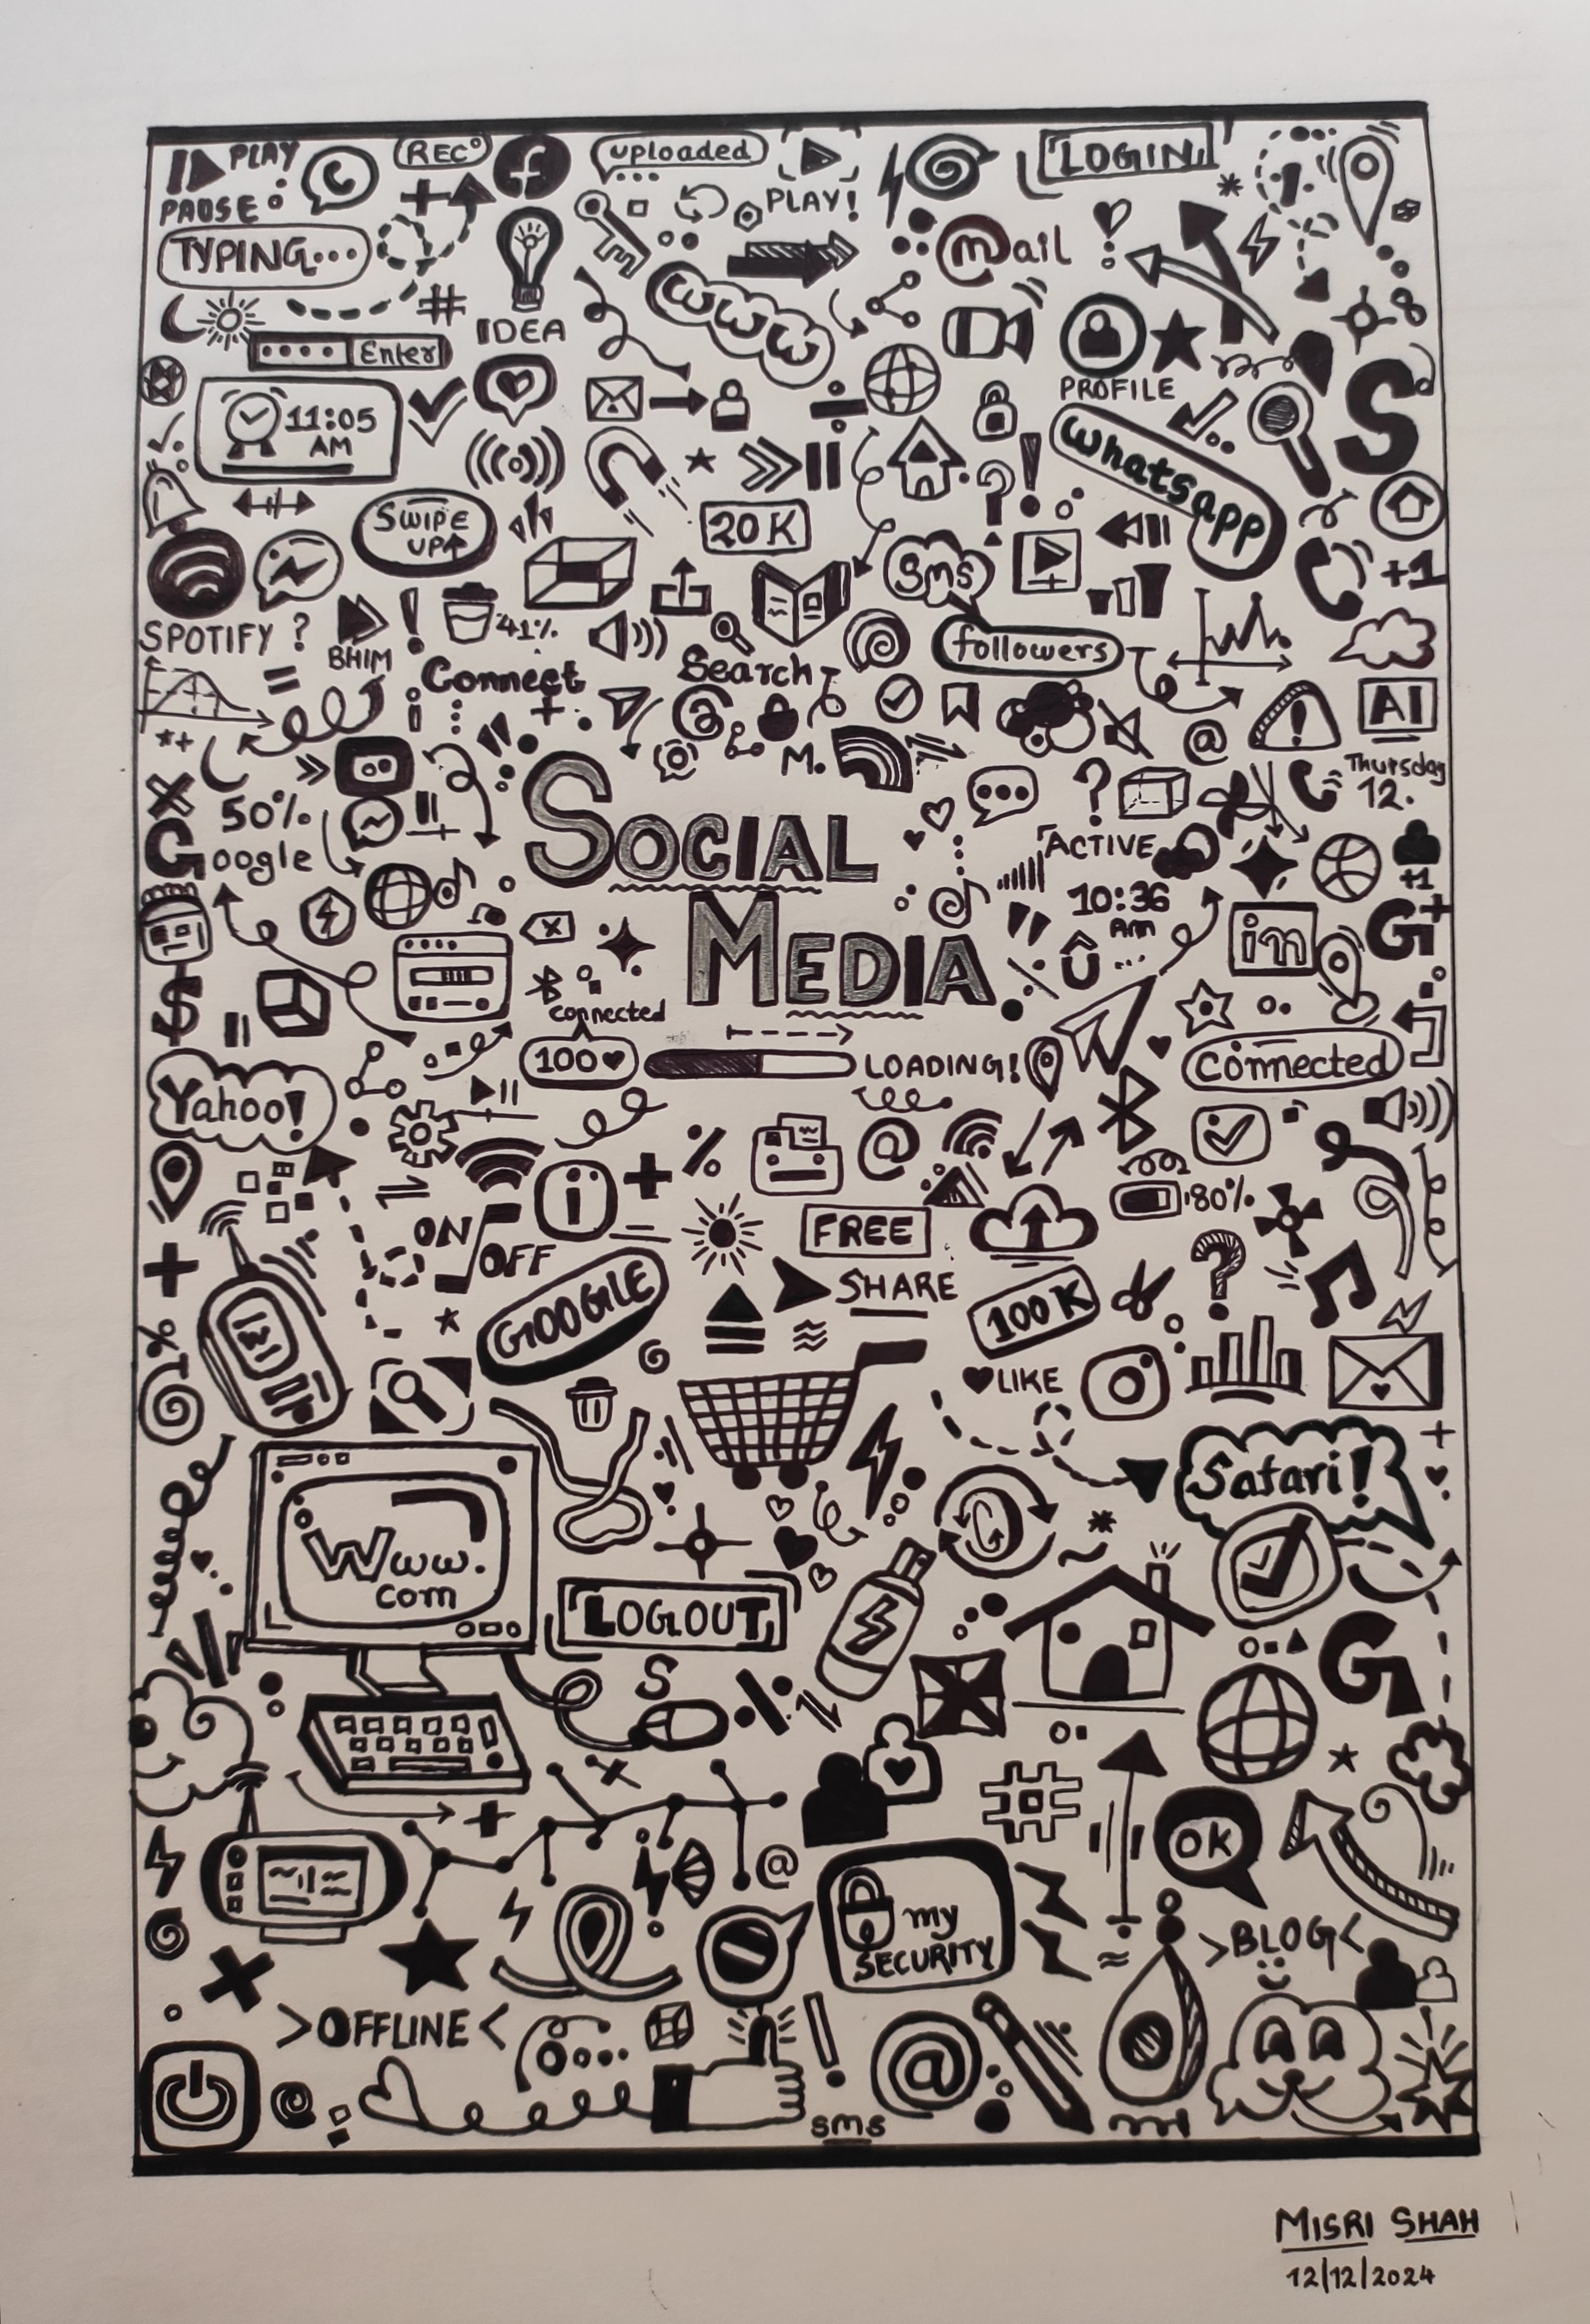 PLAY
PAUSE
REC
uploaded
PLAY!
LOGIN
TYPING...
@mail
IDEA
www
Enter
PROFILE
11:05
AM
whatsapp
S
SWIPE
UP
20K
sms
+1
SPOTIFY ?
BHIM
41%
Connect
Search
followers
AI
M.
Thursday
12.
50%
Google
SOCIAL
MEDIA
ACTIVE
10:36
Am
+1
in
G+
$
connected
100
LOADING!
connected
Yahoo!
80%
ON
/OFF
FREE
SHARE
GOOGLE
100K
LIKE
Safari!
Www.
com
LOGOUT
S
G
OK
my
SECURITY
>BLOG<
>OFFLINE<
@
sms
MISRI SHAH
12/12/2024